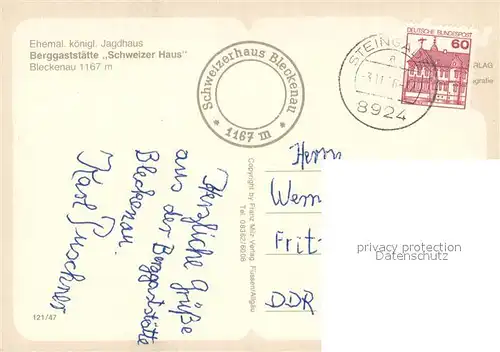 Ehemal. königl. Jagdhaus
Berggaststätte „Schweizer Haus"
Bleckenau 1167 m
Schweizerhaus Bleckenau
* 1167 m *
STEINGA
a
8924
DEUTSCHE BUNDESPOST
60
RLAG
grafie
Herzliche Grüße
aus der Berggaststätte
Bleckenau.
Karl
Copyright by Franz Milz-Verlag Füssen/Allgäu
Tel. 08362/6008
Herrn
Wern
Frit-
DDR
privacy protection
Datenschutz
121/47